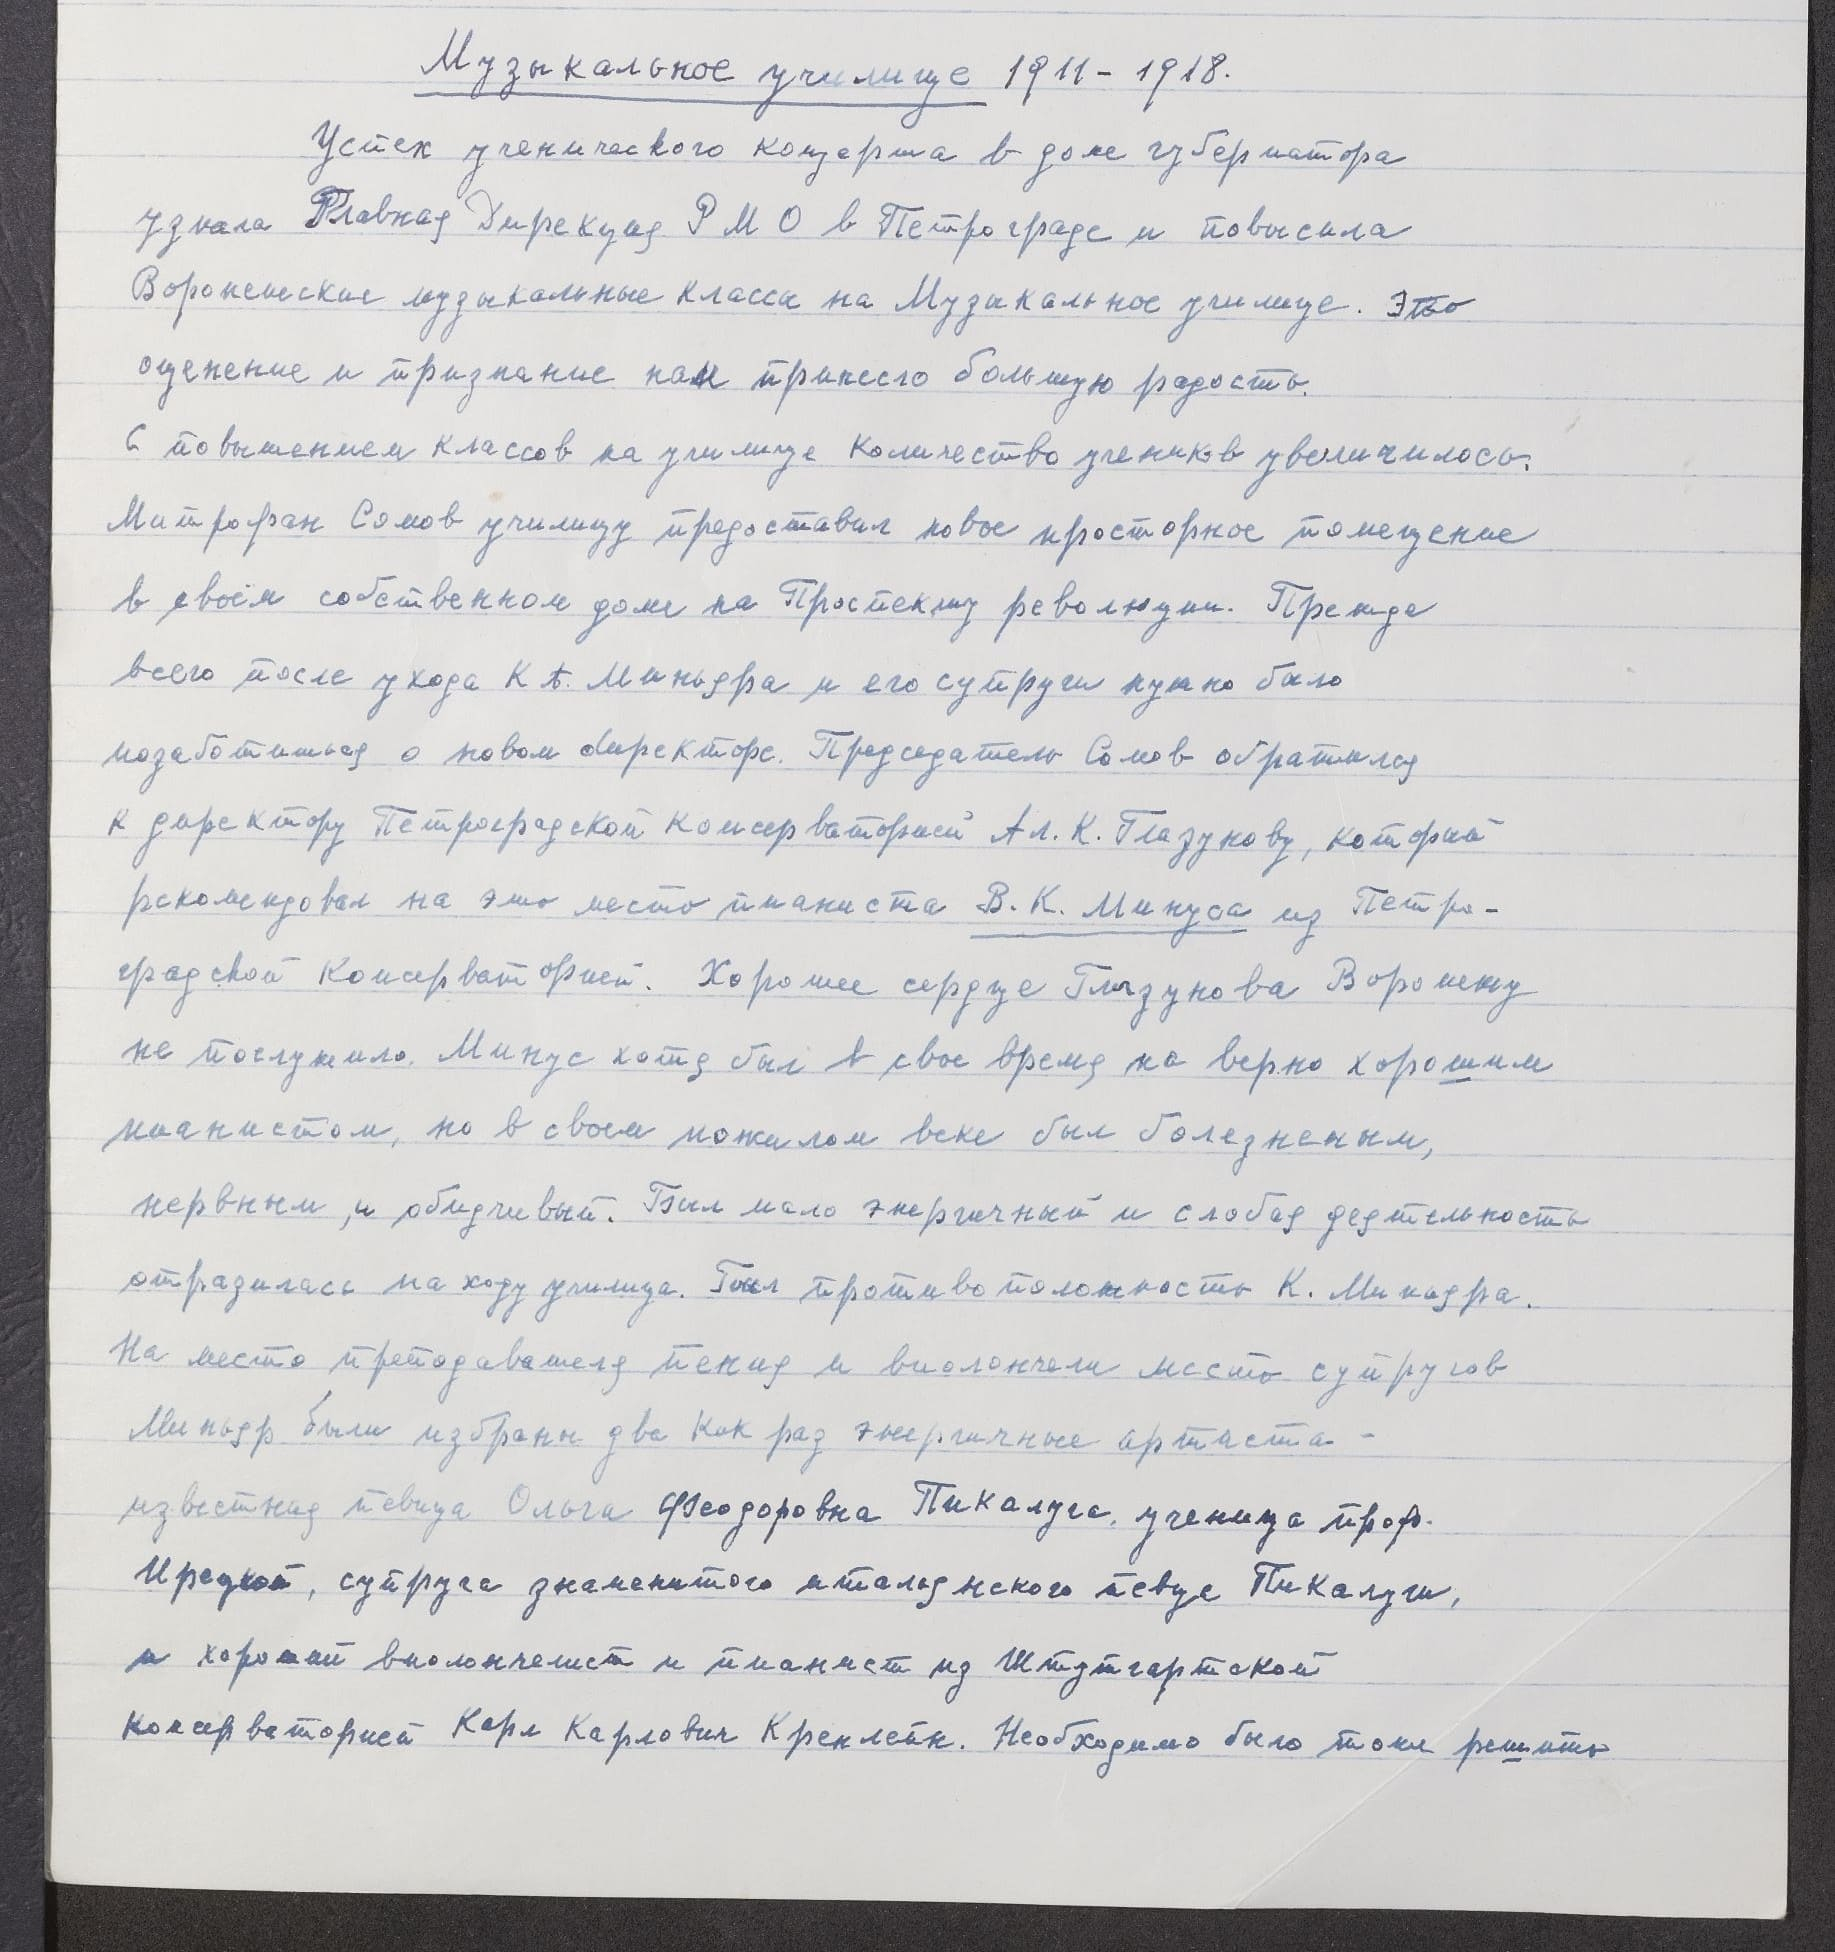 Музыкальное училище 1911 - 1918.
Успех ученического концерта в доме губернатора
узнала Главная Дирекция Р М О в Петрограде и повысила
Воронежские музыкальные классы на Музыкальное училище. Это
оценение и признание нам принесло большую радость.
С повышением классов на училище количество учеников увеличилось.
Митрофан Сомов училищу предоставил новое просторное помещение
в своём собственном доме на Проспекту революции. Прежде
всего после ухода К. А. Миньяра и его супруги нужно было
позаботиться о новом директоре. Председатель Сомов обратился
к директору Петроградской консерваторией Ал. К. Глазунову, который
рекомендовал на это место пианиста В. К. Минуса из Петро-
градской Консерваторией. Хорошее сердце Глазунова Воронежу
не послужило. Минус хотя был в свое время на верно хорошим
пианистом, но в своем пожилом веке был болезненым,
нервным, и обидчивый. Был мало энергичный и слабая деятельность
отразилась на ходу училища. Был противоположность К. Миньяра.
На место преподавателя пения и виолончели место супругов
Миньяр были избраны два как раз энергичные артиста -
известная певица Ольга Феодоровна Пикалуга, ученица проф.
Ирецкой, супруга знаменитого итальянского певца Пикалуги,
и хороший виолончелист и пианист из Штутгартской
консерваторией Карл Карлович Кренлейн. Необходимо было тоже решить